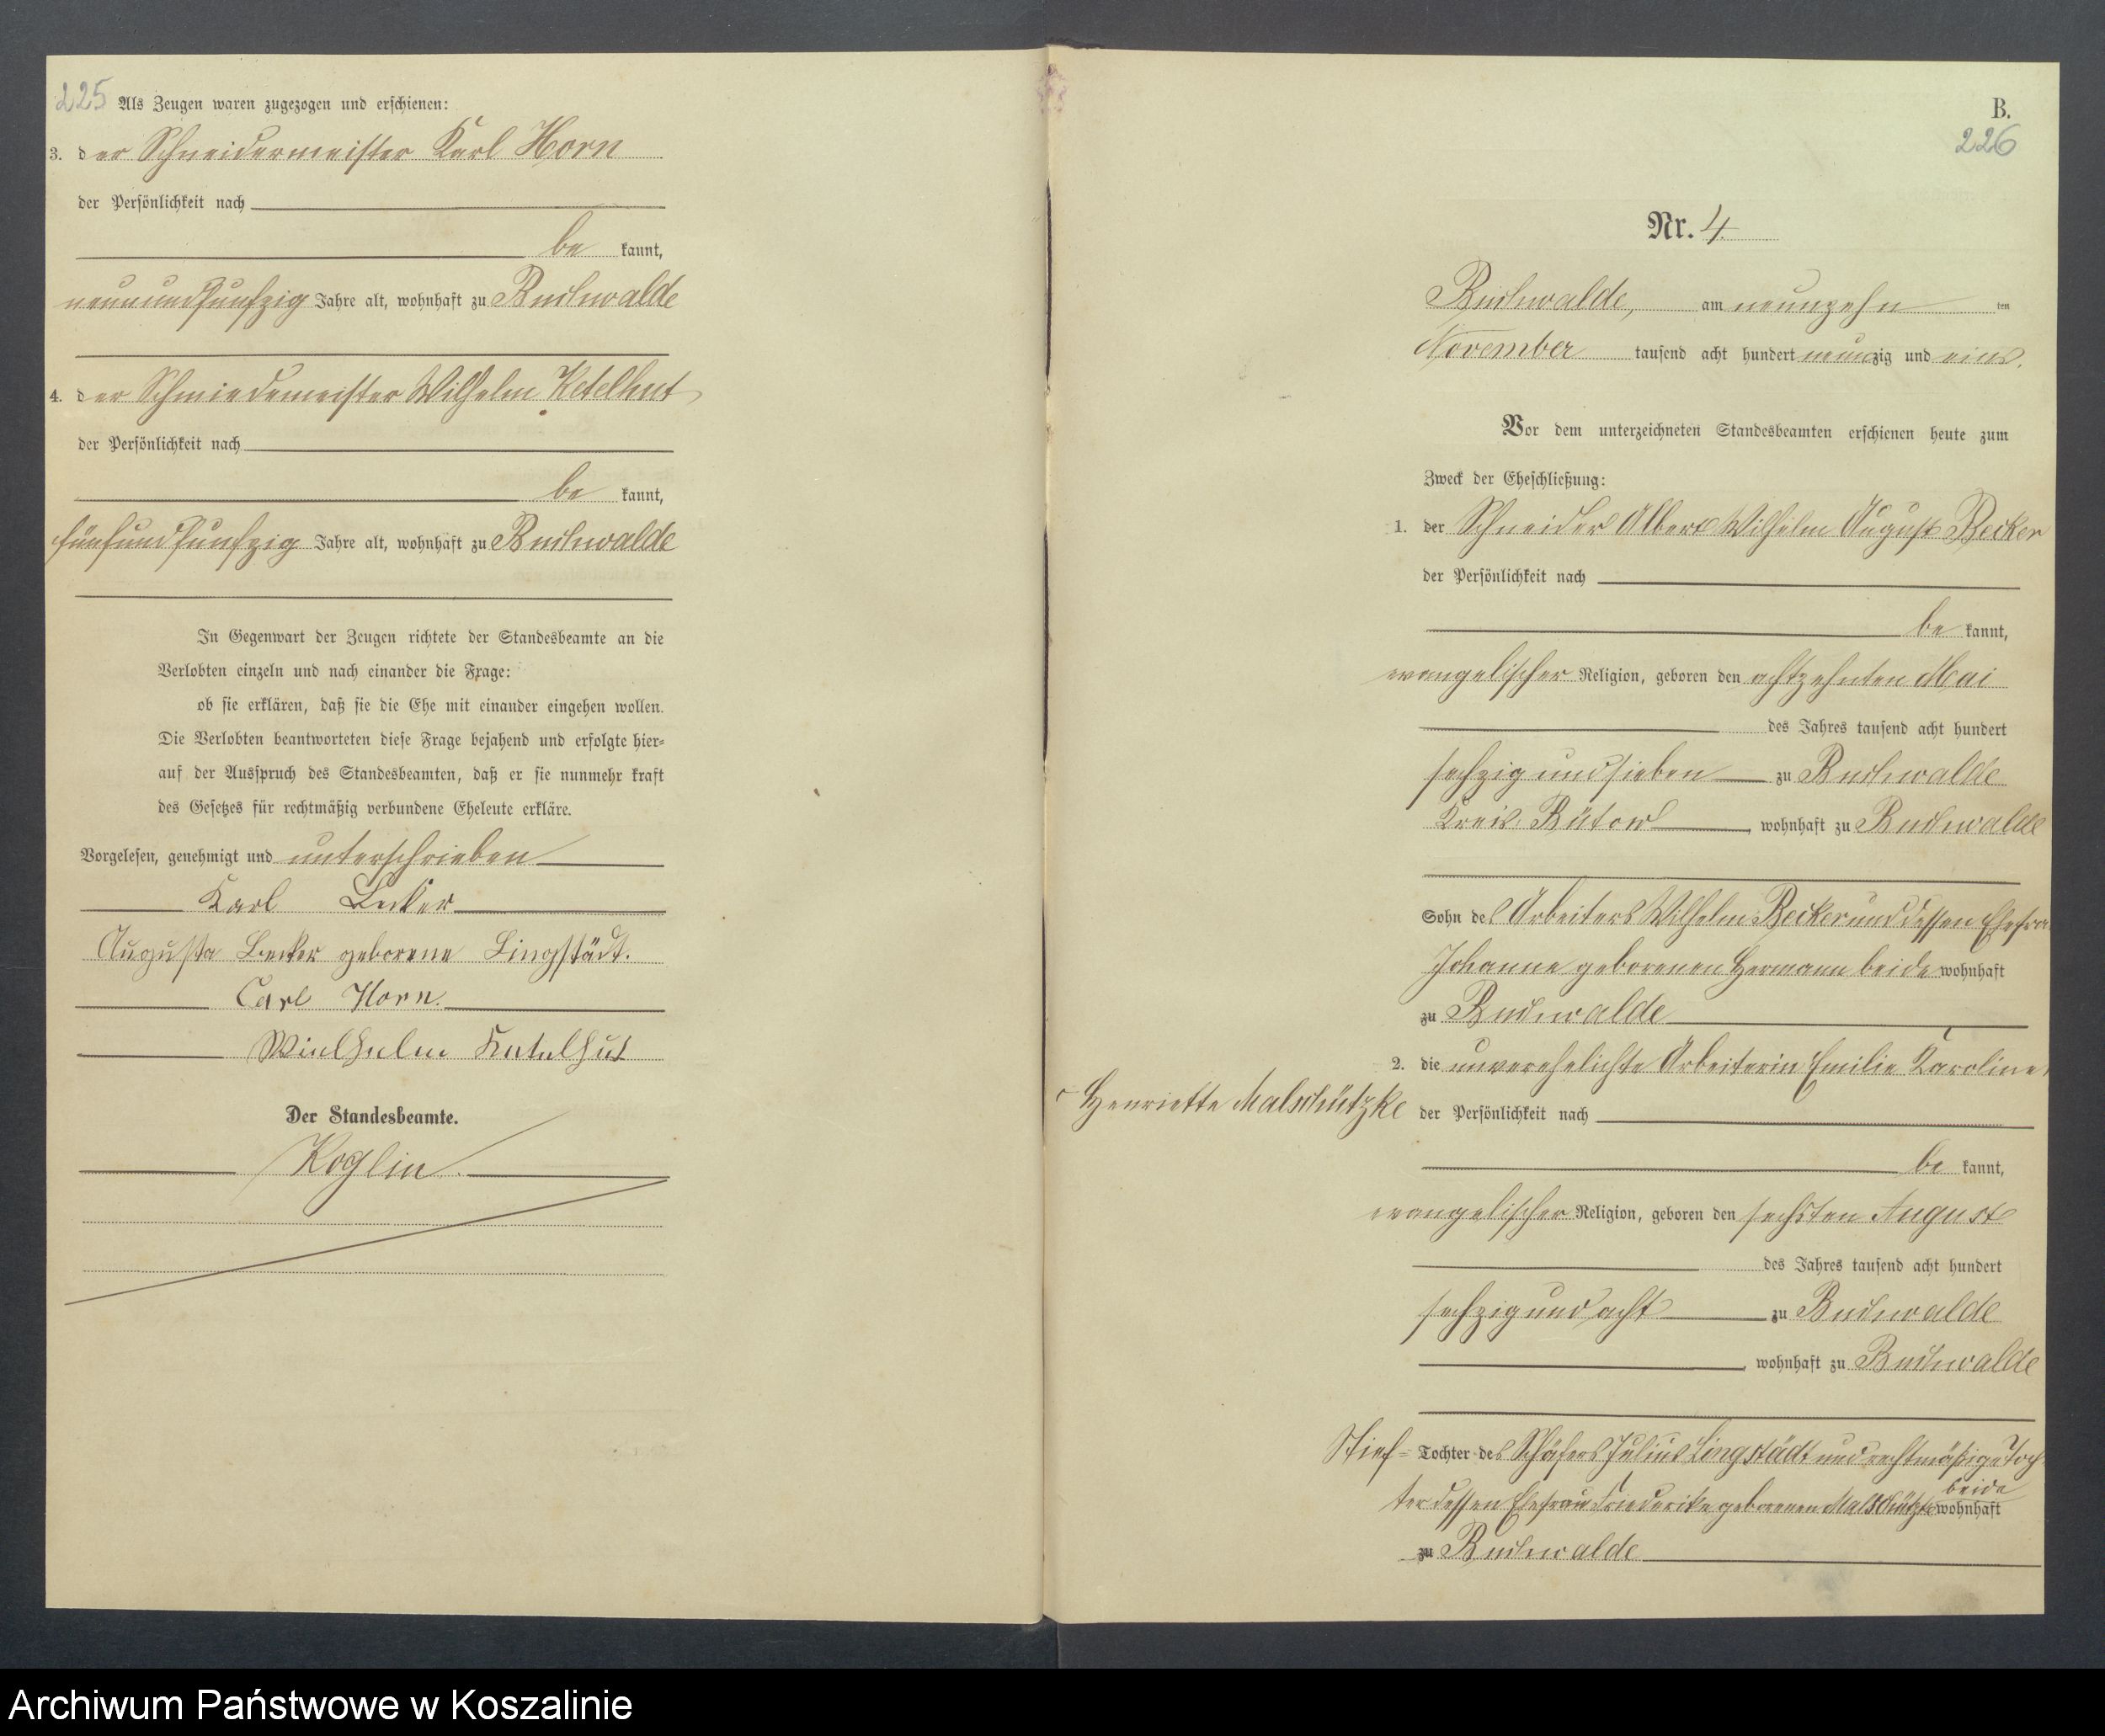 225 Als Zeugen waren zugezogen und erschienen:
3. der Schneidermeister Karl Horn
der Persönlichkeit nach
be kannt,
neunundfunfzig Jahre alt, wohnhaft zu Buchwalde
4. der Schmiedemeister Wilhelm Ketelhut
der Persönlichkeit nach
be kannt,
fünfundfunfzig Jahre alt, wohnhaft zu Buchwalde
In Gegenwart der Zeugen richtete der Standesbeamte an die
Verlobten einzeln und nach einander die Frage:
ob sie erklären, daß sie die Ehe mit einander eingehen wollen.
Die Verlobten beantworteten diese Frage bejahend und erfolgte hier-
auf der Ausspruch des Standesbeamten, daß er sie nunmehr kraft
des Gesetzes für rechtmäßig verbundene Eheleute erkläre.
Vorgelesen, genehmigt und unterschrieben
Karl Becker
Augusta Becker geborene Lingstädt.
Carl Horn.
Wielhelm Ketelhut
Der Standesbeamte.
Koglin.
B.
226
Nr. 4.
Buchwalde, am neunzehn ten
November tausend acht hundert neunzig und eins.
Vor dem unterzeichneten Standesbeamten erschienen heute zum
Zweck der Eheschließung:
1. der Schneider Albert Wilhelm August Becker
der Persönlichkeit nach
be kannt,
evangelischer Religion, geboren den achtzehnten Mai
des Jahres tausend acht hundert
sechzig und sieben zu Buchwalde
Kreis Bütow, wohnhaft zu Buchwalde
Sohn des Arbeiters Wilhelm Becker und dessen Ehefrau
Johanne geborenen Hermann beide wohnhaft
zu Buchwalde
2. die unverehelichte Arbeiterin Emilie Karoline
Henriette Malschützke der Persönlichkeit nach
be kannt,
evangelischer Religion, geboren den sechsten August
des Jahres tausend acht hundert
sechzig und acht zu Buchwalde
, wohnhaft zu Buchwalde
Stief- Tochter des Schäfers Julius Lingstädt und rechtmäßige Toch-
beide
ter dessen Ehefrau Friederike geborenen Malschützke wohnhaft
zu Buchwalde
Archiwum Państwowe w Koszalinie